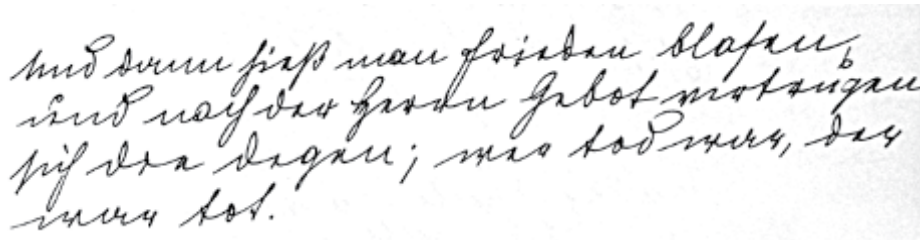 Und dann hieß man Frieden blasen,
und nach der Herrn Gebot vertrugen
sich die Degen; wer tod war, der
war tot.